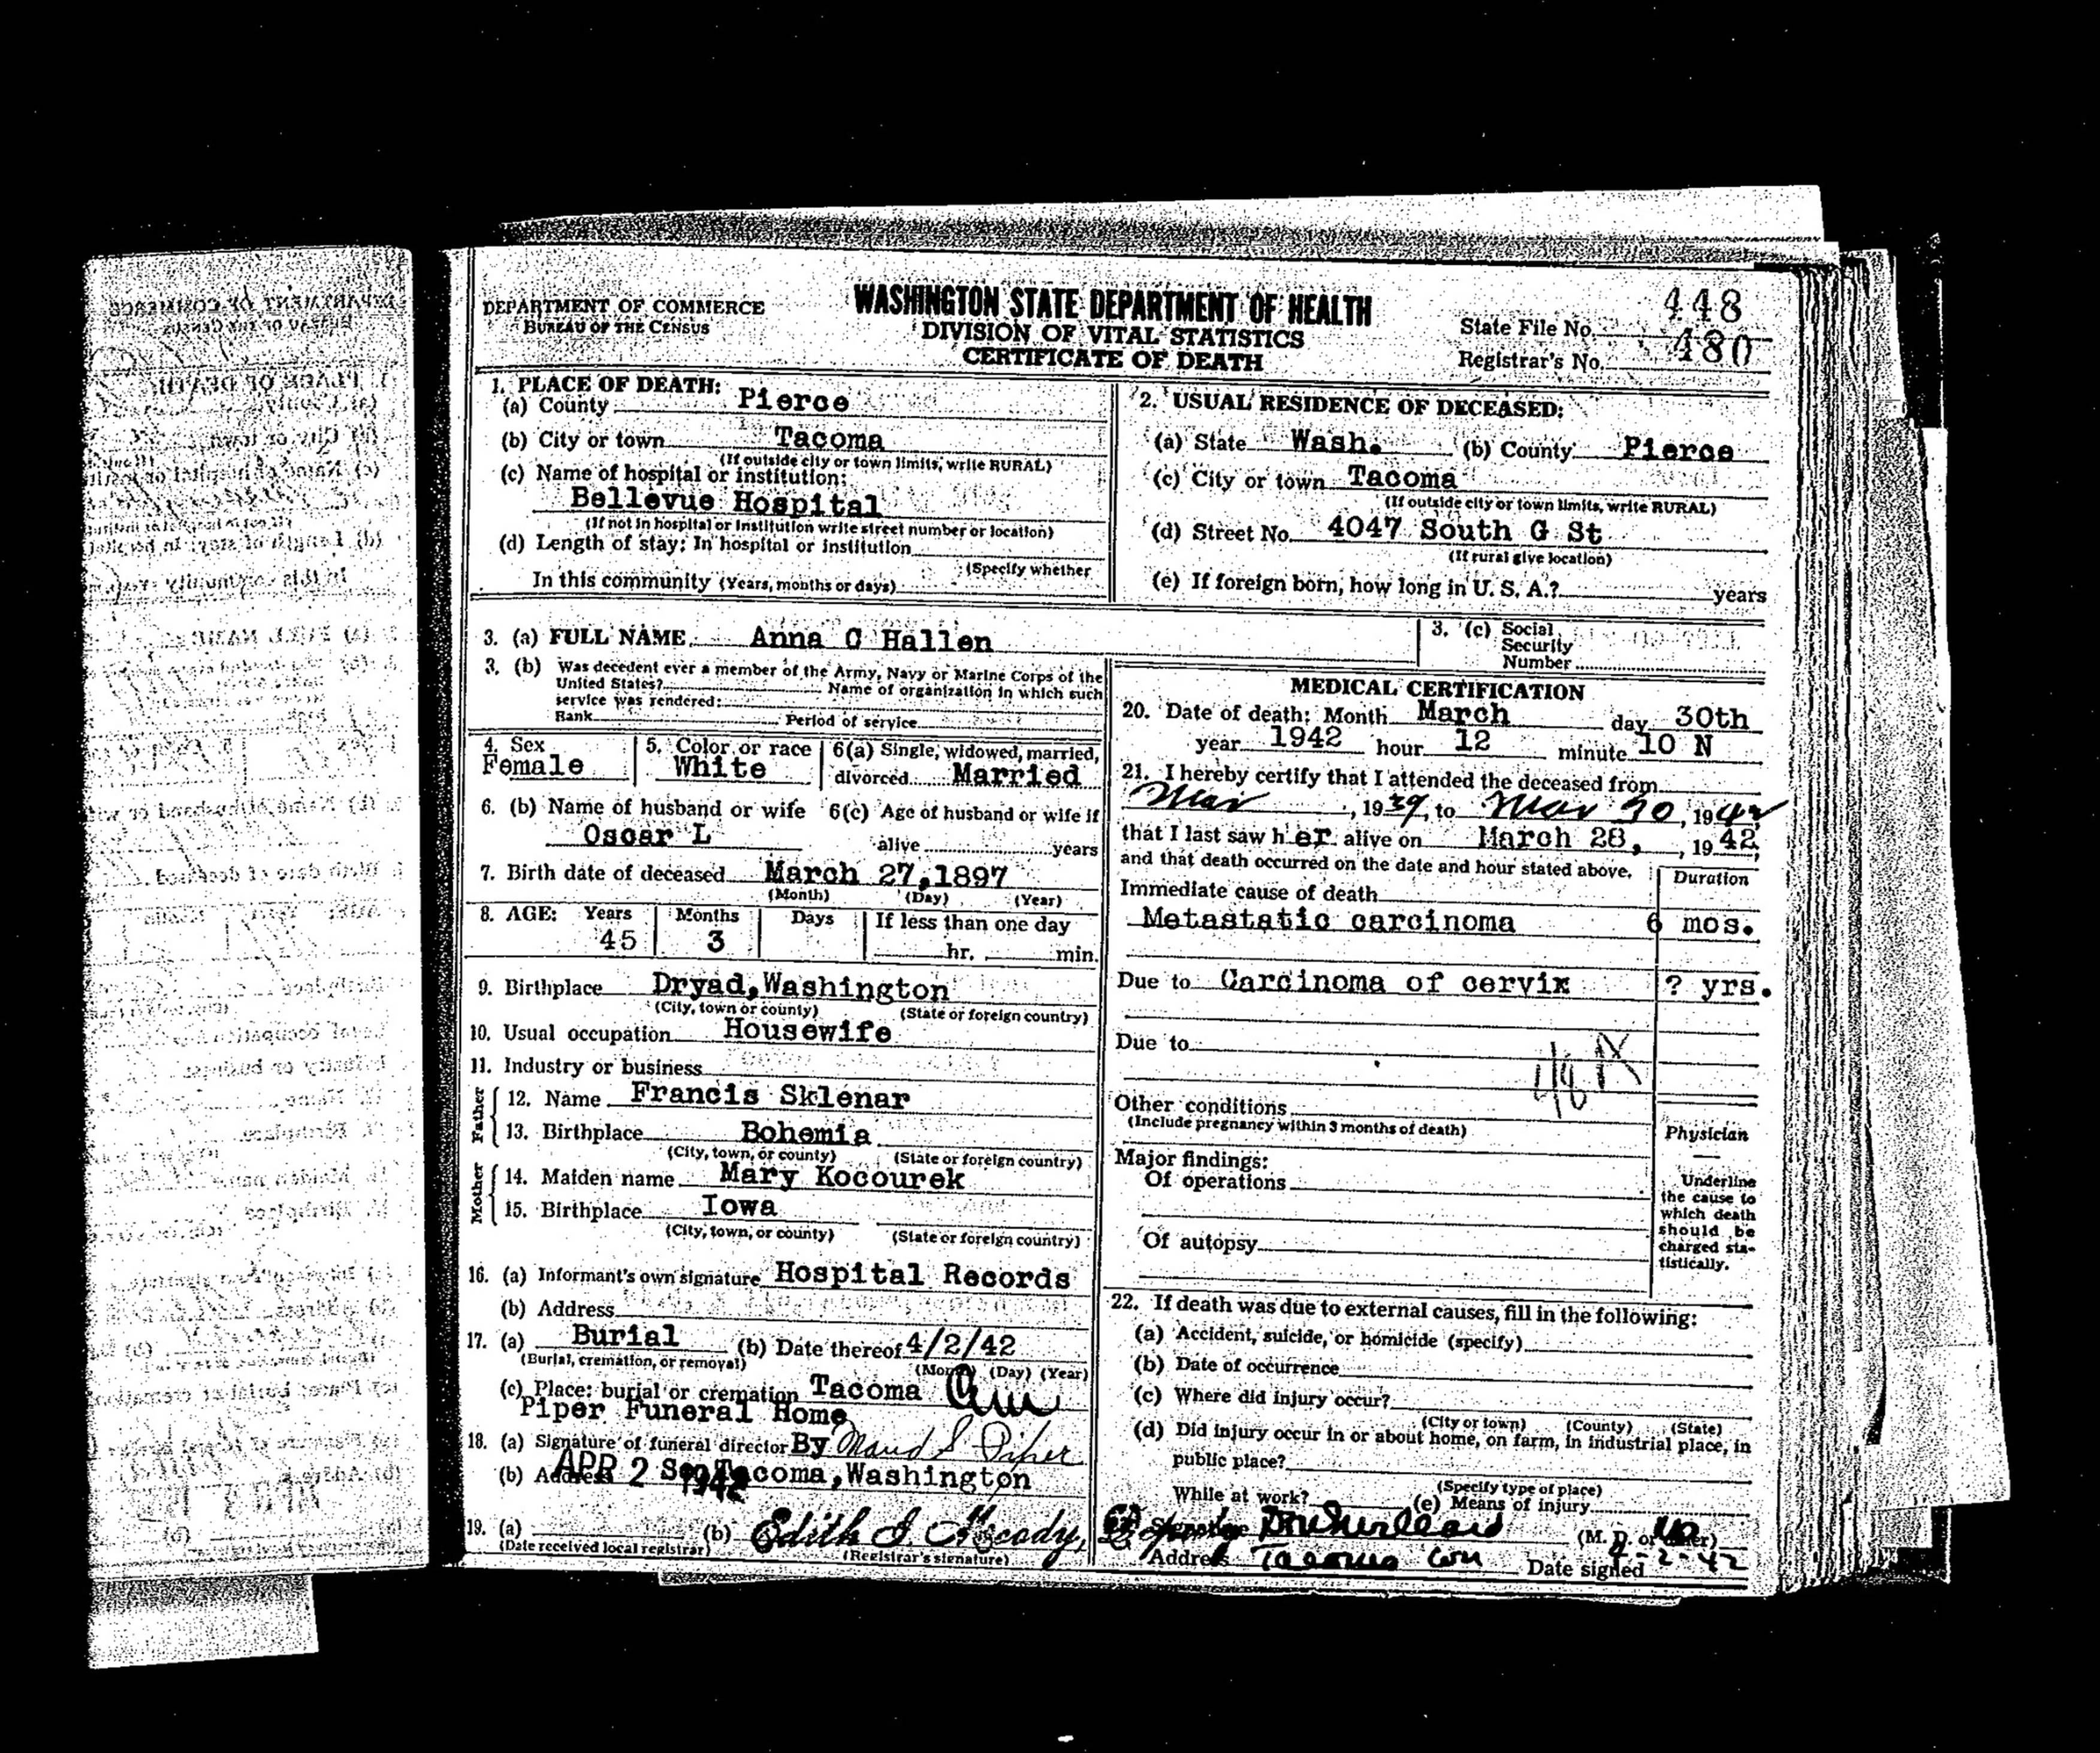 DEPARTMENT OF COMMERCE
BUREAU OF THE CENSUS
WASHINGTON STATE DEPARTMENT OF HEALTH
DIVISION OF VITAL STATISTICS
CERTIFICATE OF DEATH
448
State File No.
Registrar's No. 480
1. PLACE OF DEATH:
(a) County Pierce
(b) City or town Tacoma
(If outside city or town limits, write RURAL)
(c) Name of hospital or institution:
Bellevue Hospital
(If not in hospital or institution write street number or location)
(d) Length of stay: In hospital or institution
(Specify whether
In this community (Years, months or days)
2. USUAL RESIDENCE OF DECEASED:
(a) State Wash. (b) County Pierce
(c) City or town Tacoma
(If outside city or town limits, write RURAL)
(d) Street No. 4047 South G St
(If rural give location)
(e) If foreign born, how long in U. S. A.? years
3. (a) FULL NAME Anna C Hallen
3. (c) Social
Security
Number
3. (b) Was decedent ever a member of the Army, Navy or Marine Corps of the
United States? Name of organization in which such
service was rendered:
Rank Period of service
4. Sex
Female
5. Color or race
White
6(a) Single, widowed, married,
divorced Married
6. (b) Name of husband or wife
Oscar L
6(c) Age of husband or wife if
alive years
7. Birth date of deceased March 27,1897
(Month) (Day) (Year)
8. AGE: Years Months Days If less than one day
45 3 hr. min.
9. Birthplace Dryad,Washington
(City, town or county) (State or foreign country)
10. Usual occupation Housewife
11. Industry or business
Father
12. Name Francis Sklenar
13. Birthplace Bohemia
(City, town, or county) (State or foreign country)
Mother
14. Maiden name Mary Kocourek
15. Birthplace Iowa
(City, town, or county) (State or foreign country)
16. (a) Informant's own signature Hospital Records
(b) Address
17. (a) Burial (b) Date thereof 4/2/42
(Burial, cremation, or removal) (Month) (Day) (Year)
(c) Place: burial or cremation Tacoma
Piper Funeral Home
18. (a) Signature of funeral director By Maud S Piper
(b) Address Tacoma,Washington
APR 2 1942
19. (a) (b) Edith
(Date received local registrar) (Registrar's signature)
MEDICAL CERTIFICATION
20. Date of death: Month March day 30th
year 1942 hour 12 minute 10 N
21. I hereby certify that I attended the deceased from
Mar, 1939, to Mar 30, 1942
that I last saw her alive on March 28, , 1942
and that death occurred on the date and hour stated above.
Duration
Immediate cause of death
Metastatic carcinoma 6 mos.
Due to Carcinoma of cervix ? yrs.
Due to
Other conditions
(Include pregnancy within 3 months of death)
Major findings:
Of operations
Of autopsy
Physician
Underline
the cause to
which death
should be
charged sta-
tistically.
22. If death was due to external causes, fill in the following:
(a) Accident, suicide, or homicide (specify)
(b) Date of occurrence
(c) Where did injury occur?
(City or town) (County) (State)
(d) Did injury occur in or about home, on farm, in industrial place, in
public place?
(Specify type of place)
While at work? (e) Means of injury
(M. D. or other)
Address Tacoma Date signed 4-2-42